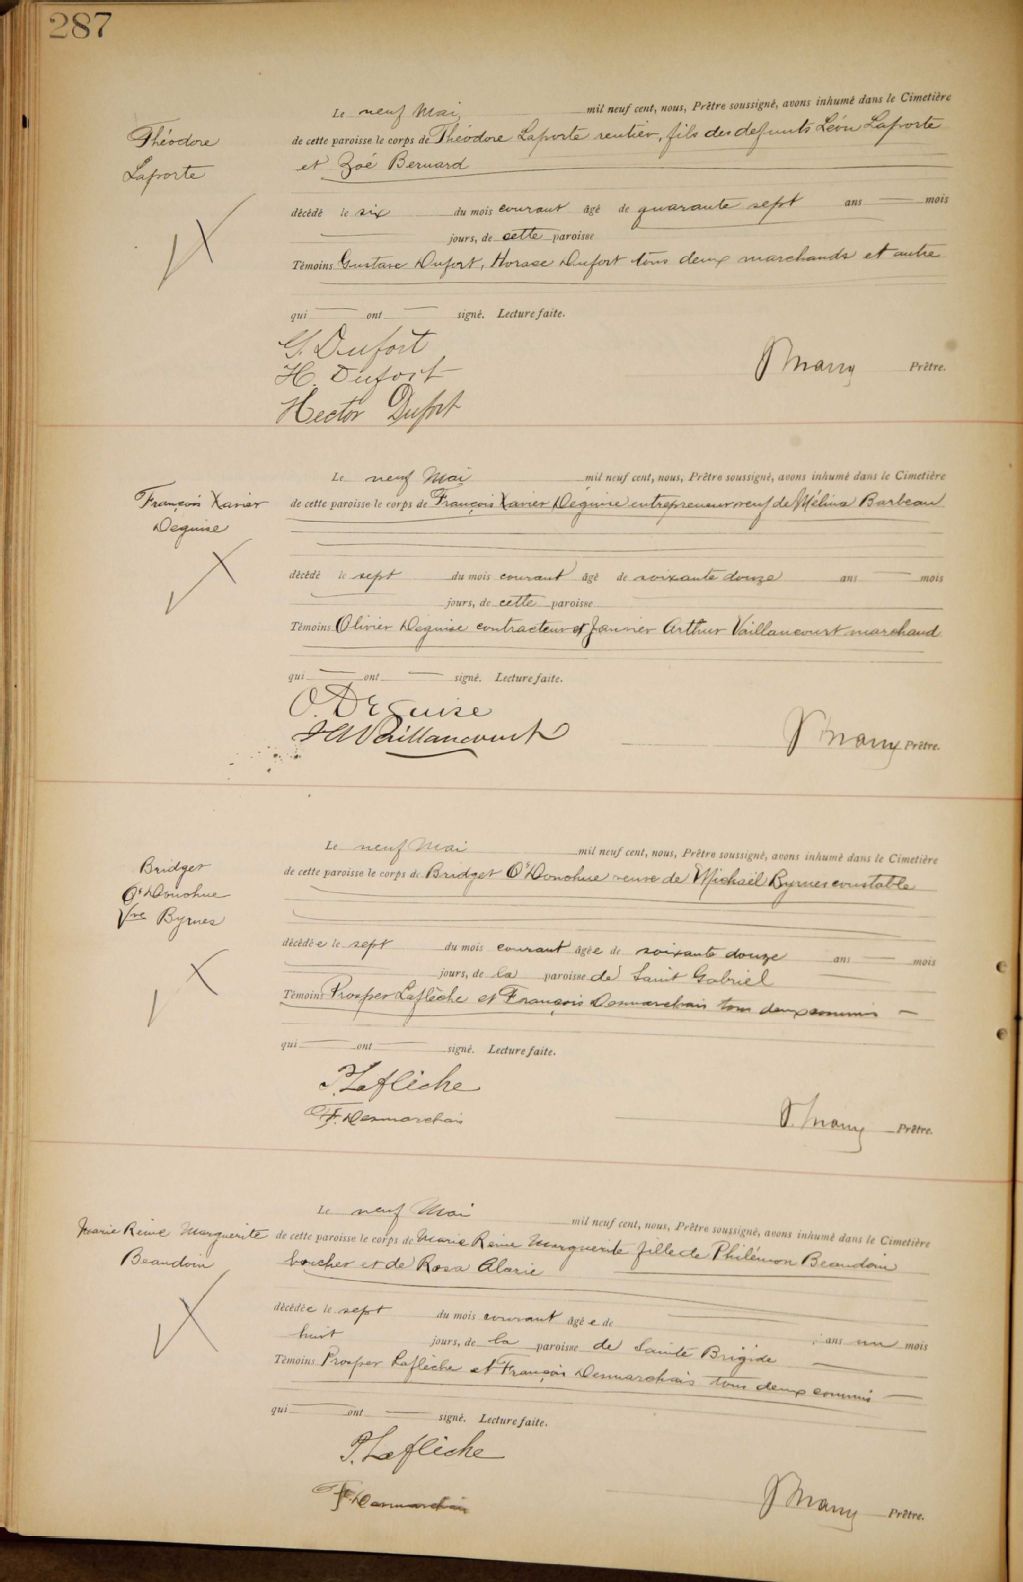 287
Le neuf Mai mil neuf cent, nous, Prêtre soussigné, avons inhumé dans le Cimetière
Théodore
Laporte
de cette paroisse le corps de Théodore Laporte rentier, fils des defunts Léon Laporte
et Zoé Bernard
décédé le six du mois courant âgé de quarante sept ans — mois
— jours, de cette paroisse
Témoins Gustave Dufort, Horase Dufort tous deux marchands et autre
qui — ont — signé. Lecture faite.
G. Dufort
H. Dufort
Hector Dufort
Prêtre.
Le neuf Mai mil neuf cent, nous, Prêtre soussigné, avons inhumé dans le Cimetière
François Xavier
Deguise
de cette paroisse le corps de François Xavier Deguise entrepreneur veuf de Mélina Barbeau
décédé le sept du mois courant âgé de soixante douze ans — mois
— jours, de cette paroisse
Témoins Olivier Deguise contracteur et Janvier Arthur Vaillancourt marchand
qui — ont — signé. Lecture faite.
O. DEguise
JAVaillancourt
Prêtre.
Le neuf Mai mil neuf cent, nous, Prêtre soussigné, avons inhumé dans le Cimetière
Bridget
O'Donohue
Vve Byrnes
de cette paroisse le corps de Bridget O'Donohue veuve de Michaël Byrnes constable
décédée le sept du mois courant âgée de soixante douze ans — mois
— jours, de la paroisse de Saint Gabriel
Témoins Prosper Laflèche et François Desmarchais tous deux commis —
qui — ont — signé. Lecture faite.
P. Laflèche
F. Desmarchais
Prêtre.
Le neuf Mai mil neuf cent, nous, Prêtre soussigné, avons inhumé dans le Cimetière
Marie Reine Marguerite
Beaudoin
de cette paroisse le corps de Marie Reine Marguerite fille de Philémon Beaudoin
boucher et de Rosa Alarie
décédée le sept du mois courant âgée de ans un mois
huit jours, de la paroisse de Sainte Brigide —
Témoins Prosper Laflèche et François Desmarchais tous deux commis —
qui — ont — signé. Lecture faite.
P. Laflèche
F. Desmarchais
Prêtre.